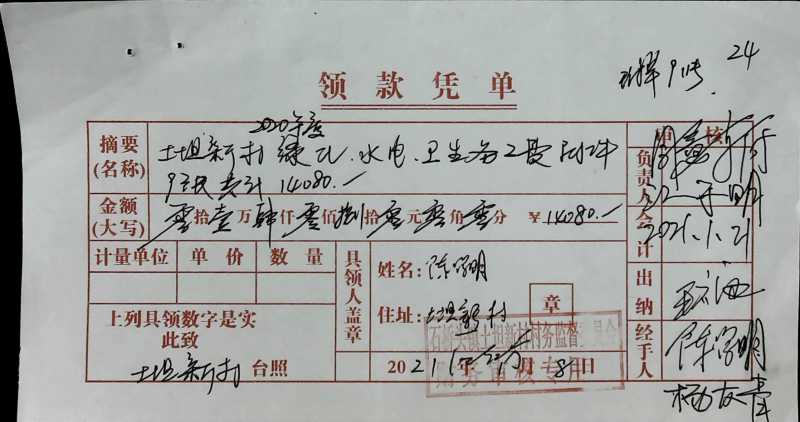 24
领款凭单
审核
2020年度
摘要(名称) 土坦新村绿化、水电、卫生各工费附件
9张共计 14080.—
金额(大写) 零拾壹万肆仟零佰捌拾零元零角零分 ¥14080.—
负责人
会计 2021.1.21
计量单位 单价 数量
具领人盖章
姓名: 陈学明
住址: 土坦新村
章
出纳
上列具领数字是实
此致
土坦新村 台照
2021年 月8日
石桥头镇土坦新村村务监督委员会
财务审核专用
经手人 陈学明
杨友青